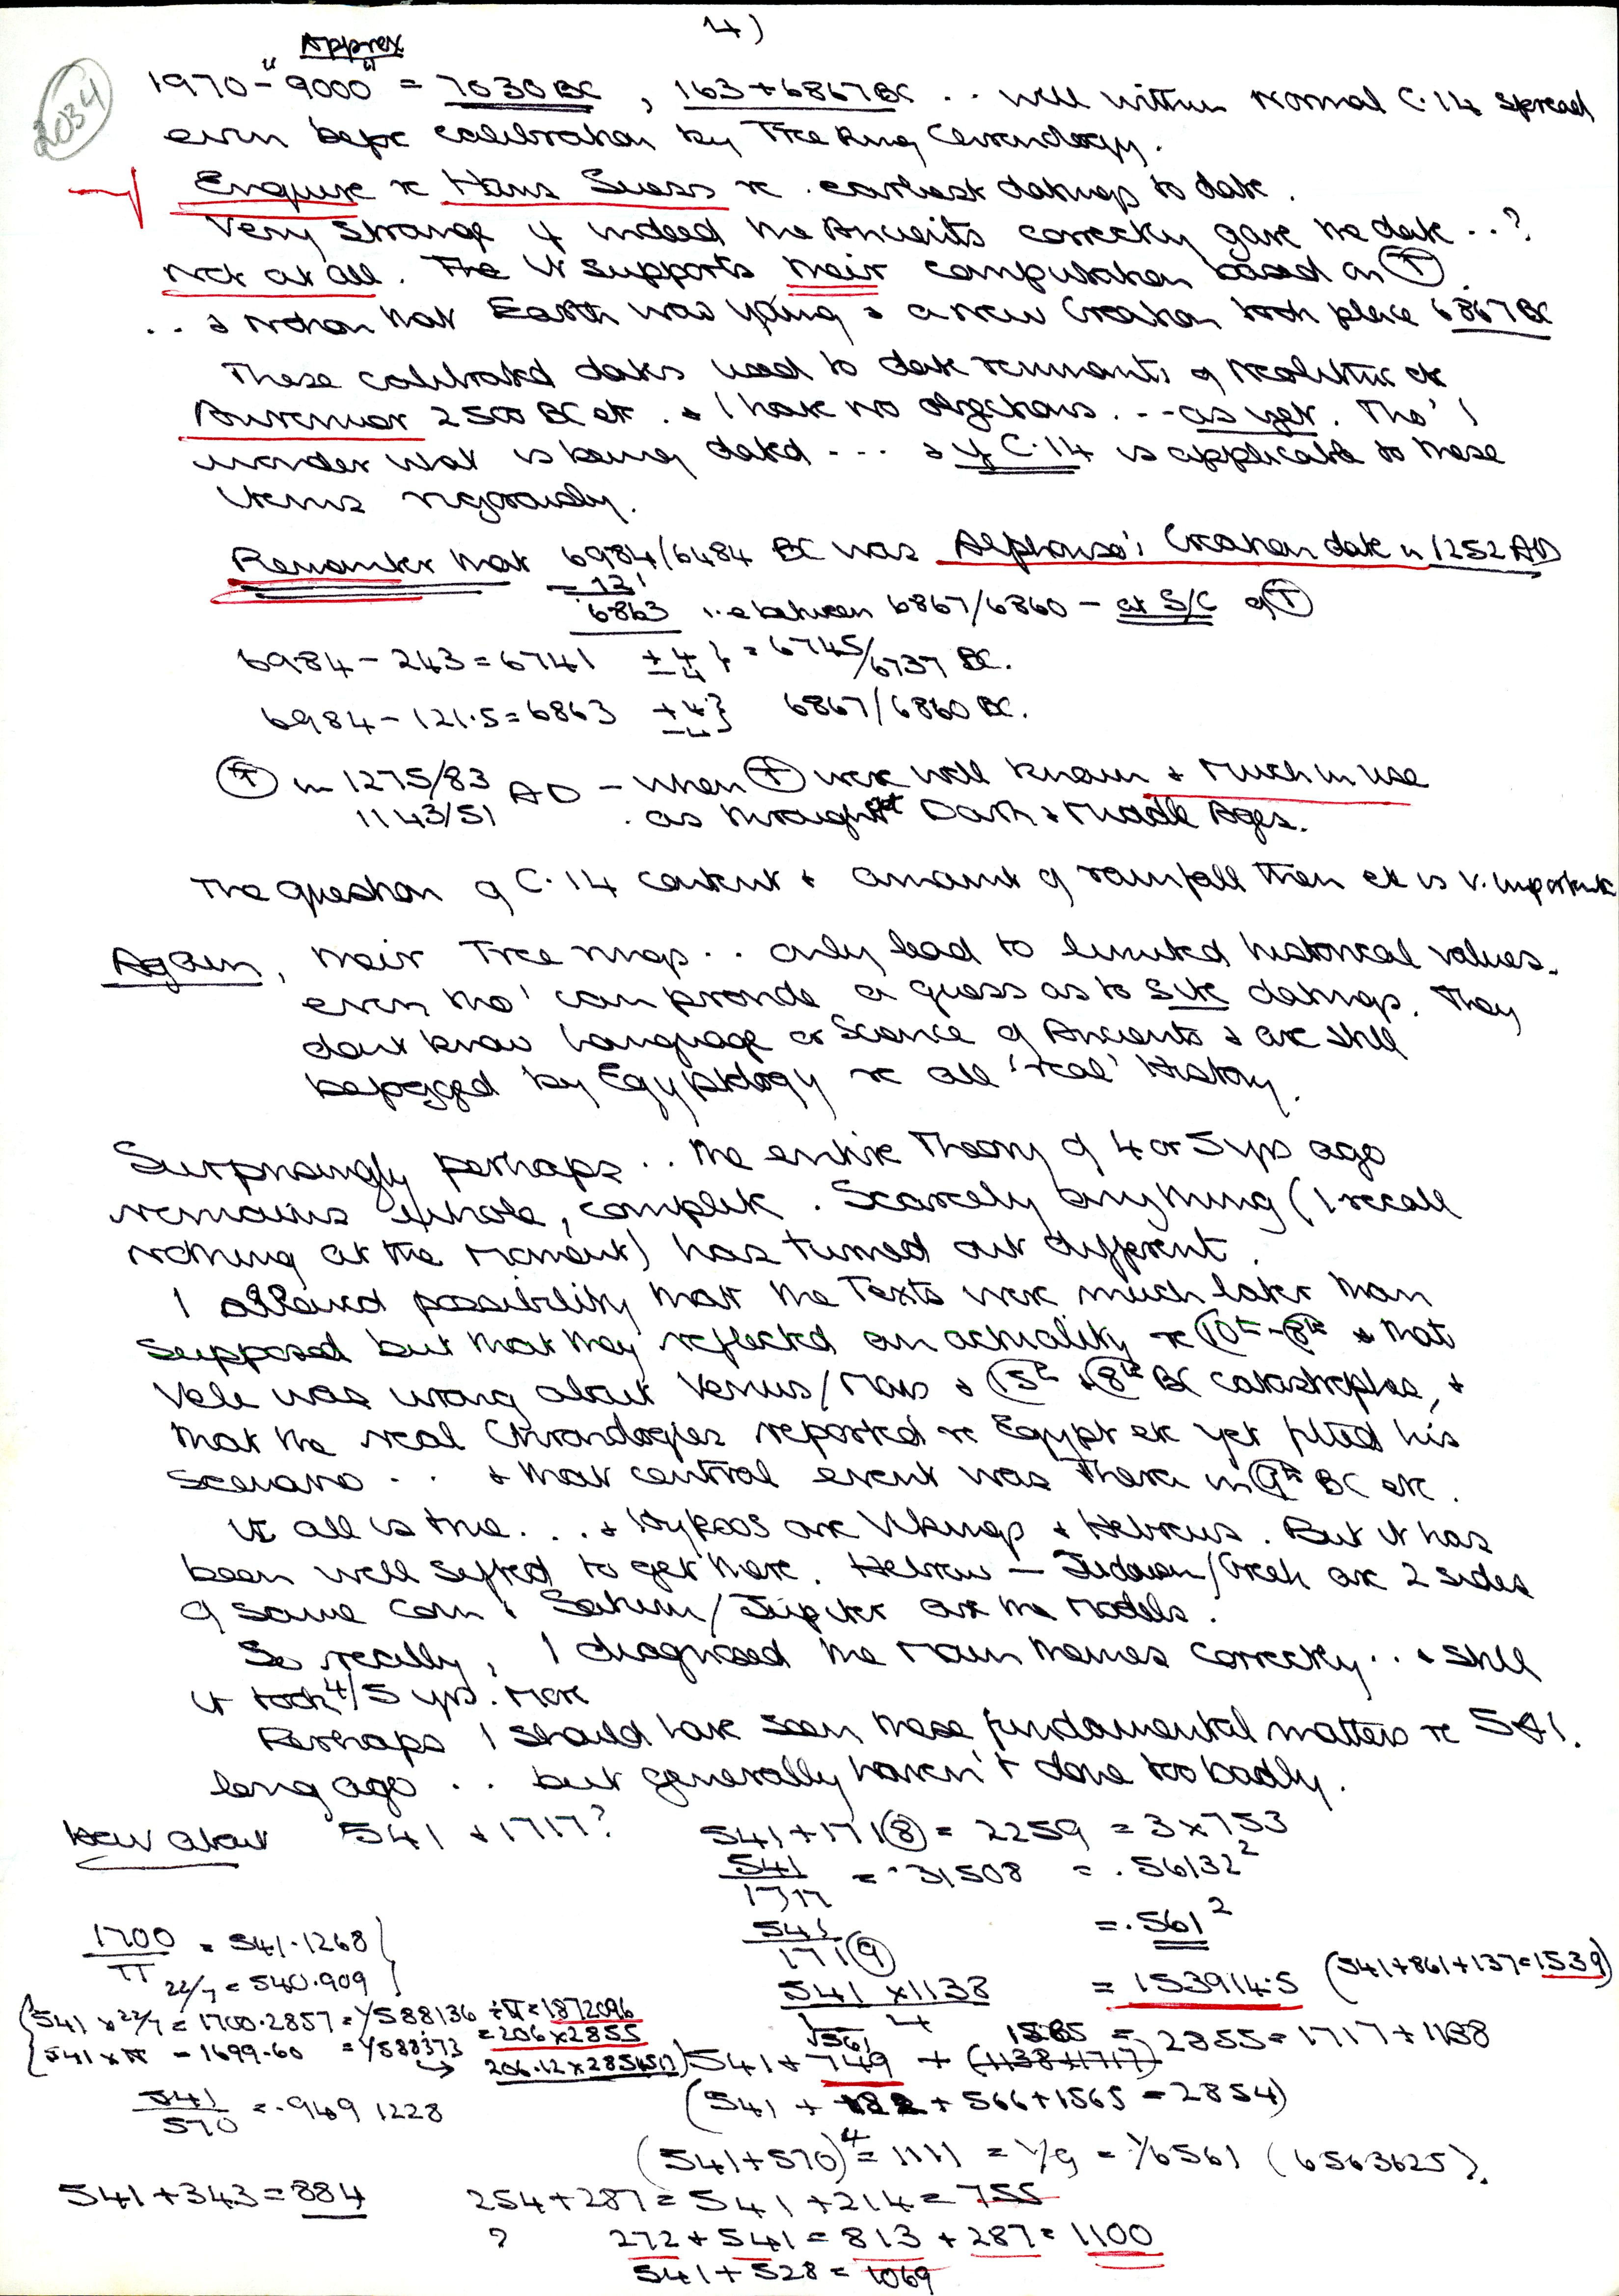 4)
2034
Approx
1970 - "9000" = 7030 BC , 163 + 6867 BC .. well within normal C.14 spread
even before calibration by Tree Ring Chronology.
Enquire re Hans Suess re. earliest datings to date.
Very strange if indeed the Ancients correctly gave the date ..?
Not at all. The Ur supports their computation based on (T).
.. & notion that Earth was young & a new Creation took place 6867 BC
These calibrated dates used to date remnants of Neolithic etc
2500 BC etc. & I have no objections. .. as yet. Tho' I
wonder what is being dated ... & if C.14 is applicable to these
items rigorously.
Remember that 6984/6484 BC was Alphonso's Creation date in 1252 AD
- 121
6863 i.e between 6867/6860 - at S/C of (T)
6984 - 243 = 6741 +4 -4 } = 6745/6737 BC.
6984 - 121.5 = 6863 +4 -4 } 6867/6860 BC.
(T) in 1275/83 AD - when (T) were well known & much in use
1143/51 . as throughout Dark & Middle Ages.
The question of C.14 content & amount of rainfall then etc is v. important
Again, their Tree rings .. only lead to limited historical values.
even tho' can provide a guess as to site datings. They
dont know language or Science of Ancients & are still
befogged by Egyptology re all 'real' History.
Surprisingly perhaps .. the entire Theory of 4 or 5 yrs ago
remains whole, complete. Scarcely anything (I recall
nothing at the moment) has turned out different.
I allowed possibility that the Texts were much later than
supposed but that they reflected an actuality re 10th - 8th & that
Vele was wrong about Venus/Mars & 15th & 8th BC catastrophes, &
that the real Chronologies reported re Egypt etc yet fitted his
scenario .. & that central event was Thera in 9th BC etc.
It all is true. .. & Hyksos are Vikings & Hebrews. But it has
been well sifted to get there. Hebrew - Judaean/Greek are 2 sides
of same coin & Saturn/Jupiter are the models.
So really, I diagnosed the main themes correctly .. & still
it took 4/5 yrs. more
Perhaps I should have seen these fundamental matters re 541.
long ago .. but generally haven't done too badly.
How about 541 + 1717?
541 + 171(8) = 2259 = 3 x 753
541/1717 = .31508 = .56132²
541/171(9) = .561²
1700/π = 541.1268
22/7 = 540.909
541 x 1138 = 153914.5 (541+861+137=1539)
541 x 22/7 = 1700.2857 = 1/588136 ÷ π = 1872096
= 206 x 2855
541 x π = 1699.60 = 1/588373
206.12 x 2854517
1565 = 2855 = 1717 + 1138
541 + 749 + (1138+1717)
541/570 = .9491228
(541 + 182 + 566 + 1565 = 2854)
(541+570)⁴ = 1111 = 1/9 = 1/6561 (6563625).
541 + 343 = 884
254 + 287 = 541 + 214 = 755
? 272 + 541 = 813 + 287 = 1100
541 + 528 = 1069